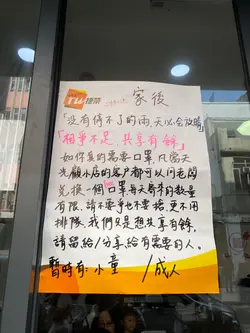 TW 捷榮
家後
「沒有停不了的雨,天必會放晴」
「相爭不足,共享有餘」
如你真的需要口罩,凡當天
光顧小店的客户都可以问老闆
兌換一個口罩,每天
有限,請不要爭也不要搶,更不用
排隊,我們只是想共享有餘,
請留給/分享給有需要的人。
暫時有:小童 /成人